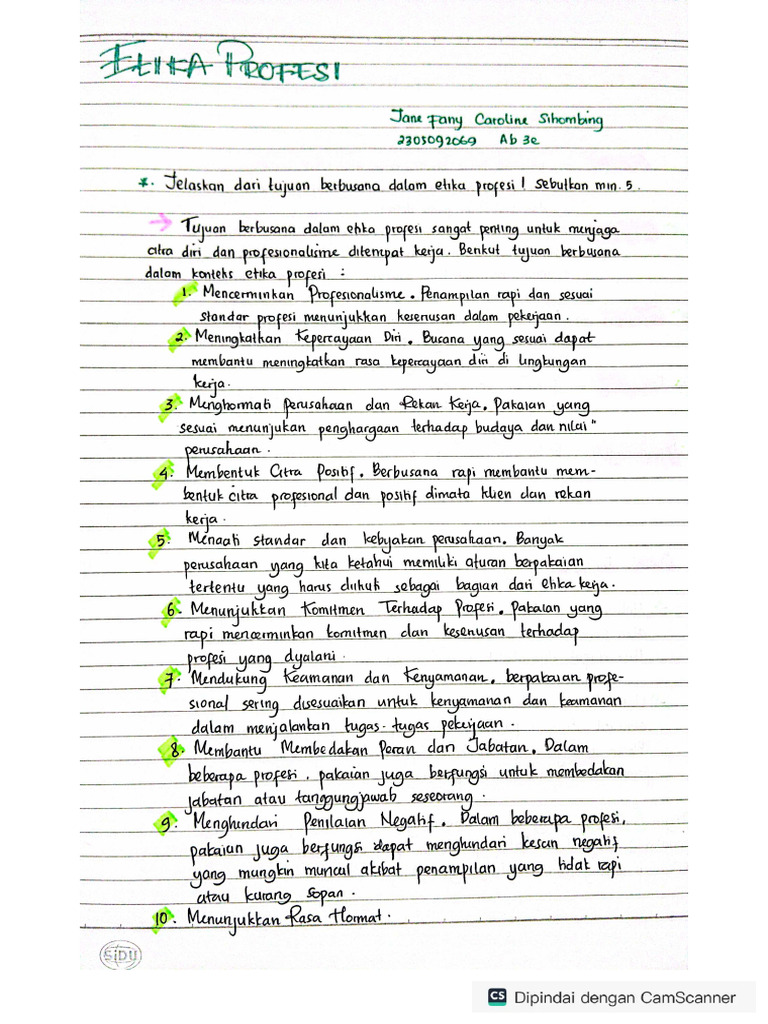 ETIKA PROFESI
Jane Fany Caroline Sihombing
2305092069 Ab 3e
*. Jelaskan dari tujuan berbusana dalam etika profesi ! Sebutkan min. 5.
→ Tujuan berbusana dalam etika profesi sangat penting untuk menjaga
citra diri dan profesionalisme ditempat kerja. Berikut tujuan berbusana
dalam konteks etika profesi :
1. Mencerminkan Profesionalisme. Penampilan rapi dan sesuai
standar profesi menunjukkan keseriusan dalam pekerjaan.
2. Meningkatkan Kepercayaan Diri. Busana yang sesuai dapat
membantu meningkatkan rasa kepercayaan diri di lingkungan
kerja.
3. Menghormati Perusahaan dan Rekan Kerja. Pakaian yang
sesuai menunjukan penghargaan terhadap budaya dan nilai"
perusahaan.
4. Membentuk Citra Positif. Berbusana rapi membantu mem-
bentuk citra profesional dan positif dimata klien dan rekan
kerja.
5. Menaati standar dan kebijakan perusahaan. Banyak
perusahaan yang kita ketahui memiliki aturan berpakaian
tertentu yang harus diikuti sebagai bagian dari etika kerja.
6. Menunjukkan Komitmen Terhadap Profesi. Pakaian yang
rapi mencerminkan komitmen dan keseriusan terhadap
profesi yang dijalani.
7. Mendukung Keamanan dan Kenyamanan. berpakaian profe-
sional sering disesuaikan untuk kenyamanan dan keamanan
dalam menjalankan tugas-tugas pekerjaan.
8. Membantu Membedakan Peran dan Jabatan. Dalam
beberapa profesi, pakaian juga berfungsi untuk membedakan
jabatan atau tanggungjawab seseorang.
9. Menghindari Penilaian Negatif. Dalam beberapa profesi,
pakaian juga berfungsi dapat menghindari kesan negatif
yang mungkin muncul akibat penampilan yang tidak rapi
atau kurang sopan.
10. Menunjukkan Rasa Hormat.
SiDU
CS Dipindai dengan CamScanner